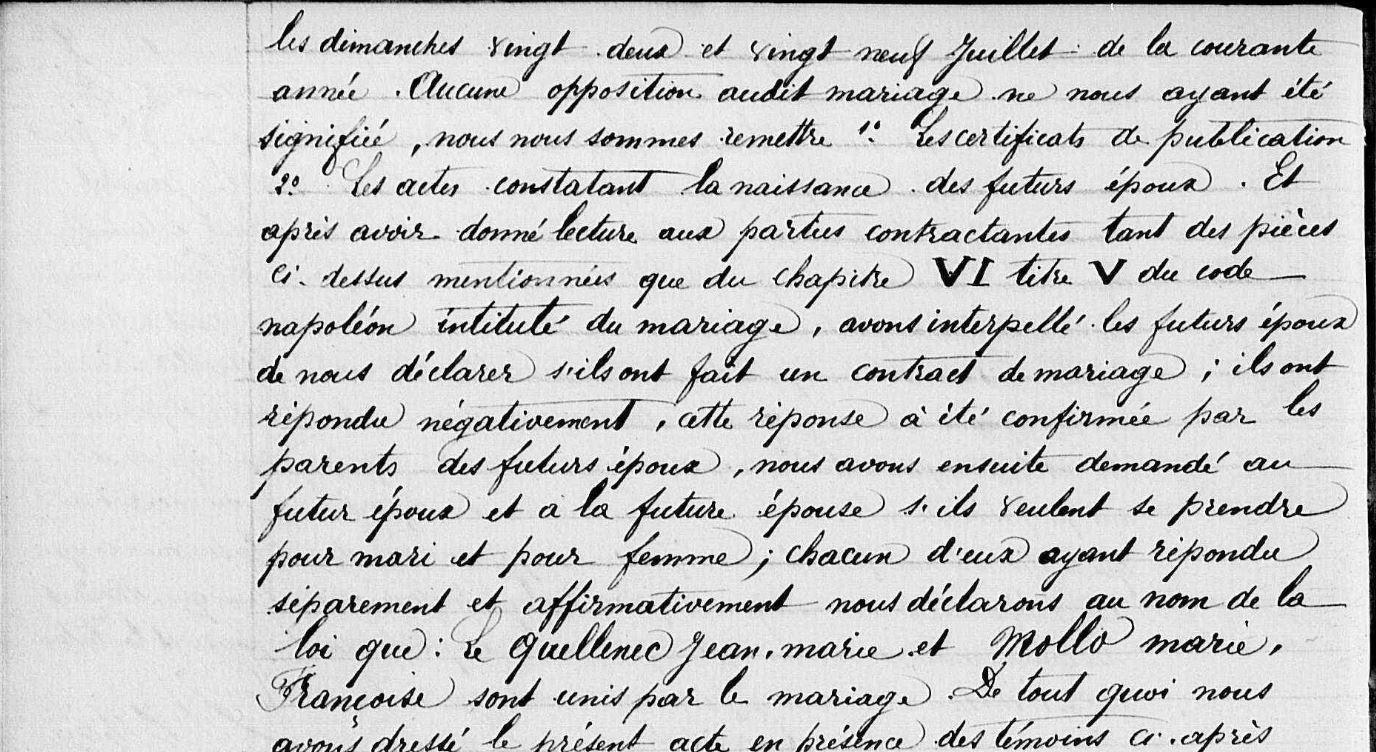 les dimanches vingt deux et vingt neuf Juillet de la courante
année. Aucune opposition audit mariage ne nous ayant été
signifiée, nous nous sommes remettre 1º. Les certificats de publication
2º. Les actes constatant la naissance des futurs époux. Et
après avoir donné lecture aux parties contractantes tant des pièces
ci. dessus mentionnées que du chapitre VI titre V du code
napoléon intitulé du mariage, avons interpellé les futurs époux
de nous déclarer s'ils ont fait un contract de mariage ; ils ont
répondu négativement, cette réponse à été confirmée par les
parents des futurs époux, nous avons ensuite demandé au
futur époux et a la future épouse s'ils veulent se prendre
pour mari et pour femme ; chacun d'eux ayant répondu
séparement et affirmativement nous déclarons au nom de la
loi que : Le Quellenec Jean. marie et Mollo marie.
Françoise sont unis par le mariage. De tout quoi nous
avons dressé le présent acte en présence des témoins ci. après